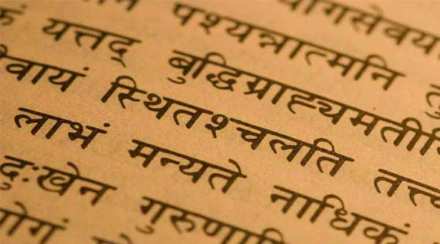 योगसेवय
पश्यन्नात्मनि तु
यत्तद् बुद्धिग्राह्यमती
वायं स्थितश्चलति तत्त्
लाभं मन्यते नाधिकं
दुःखेन गुरुणा
योगं